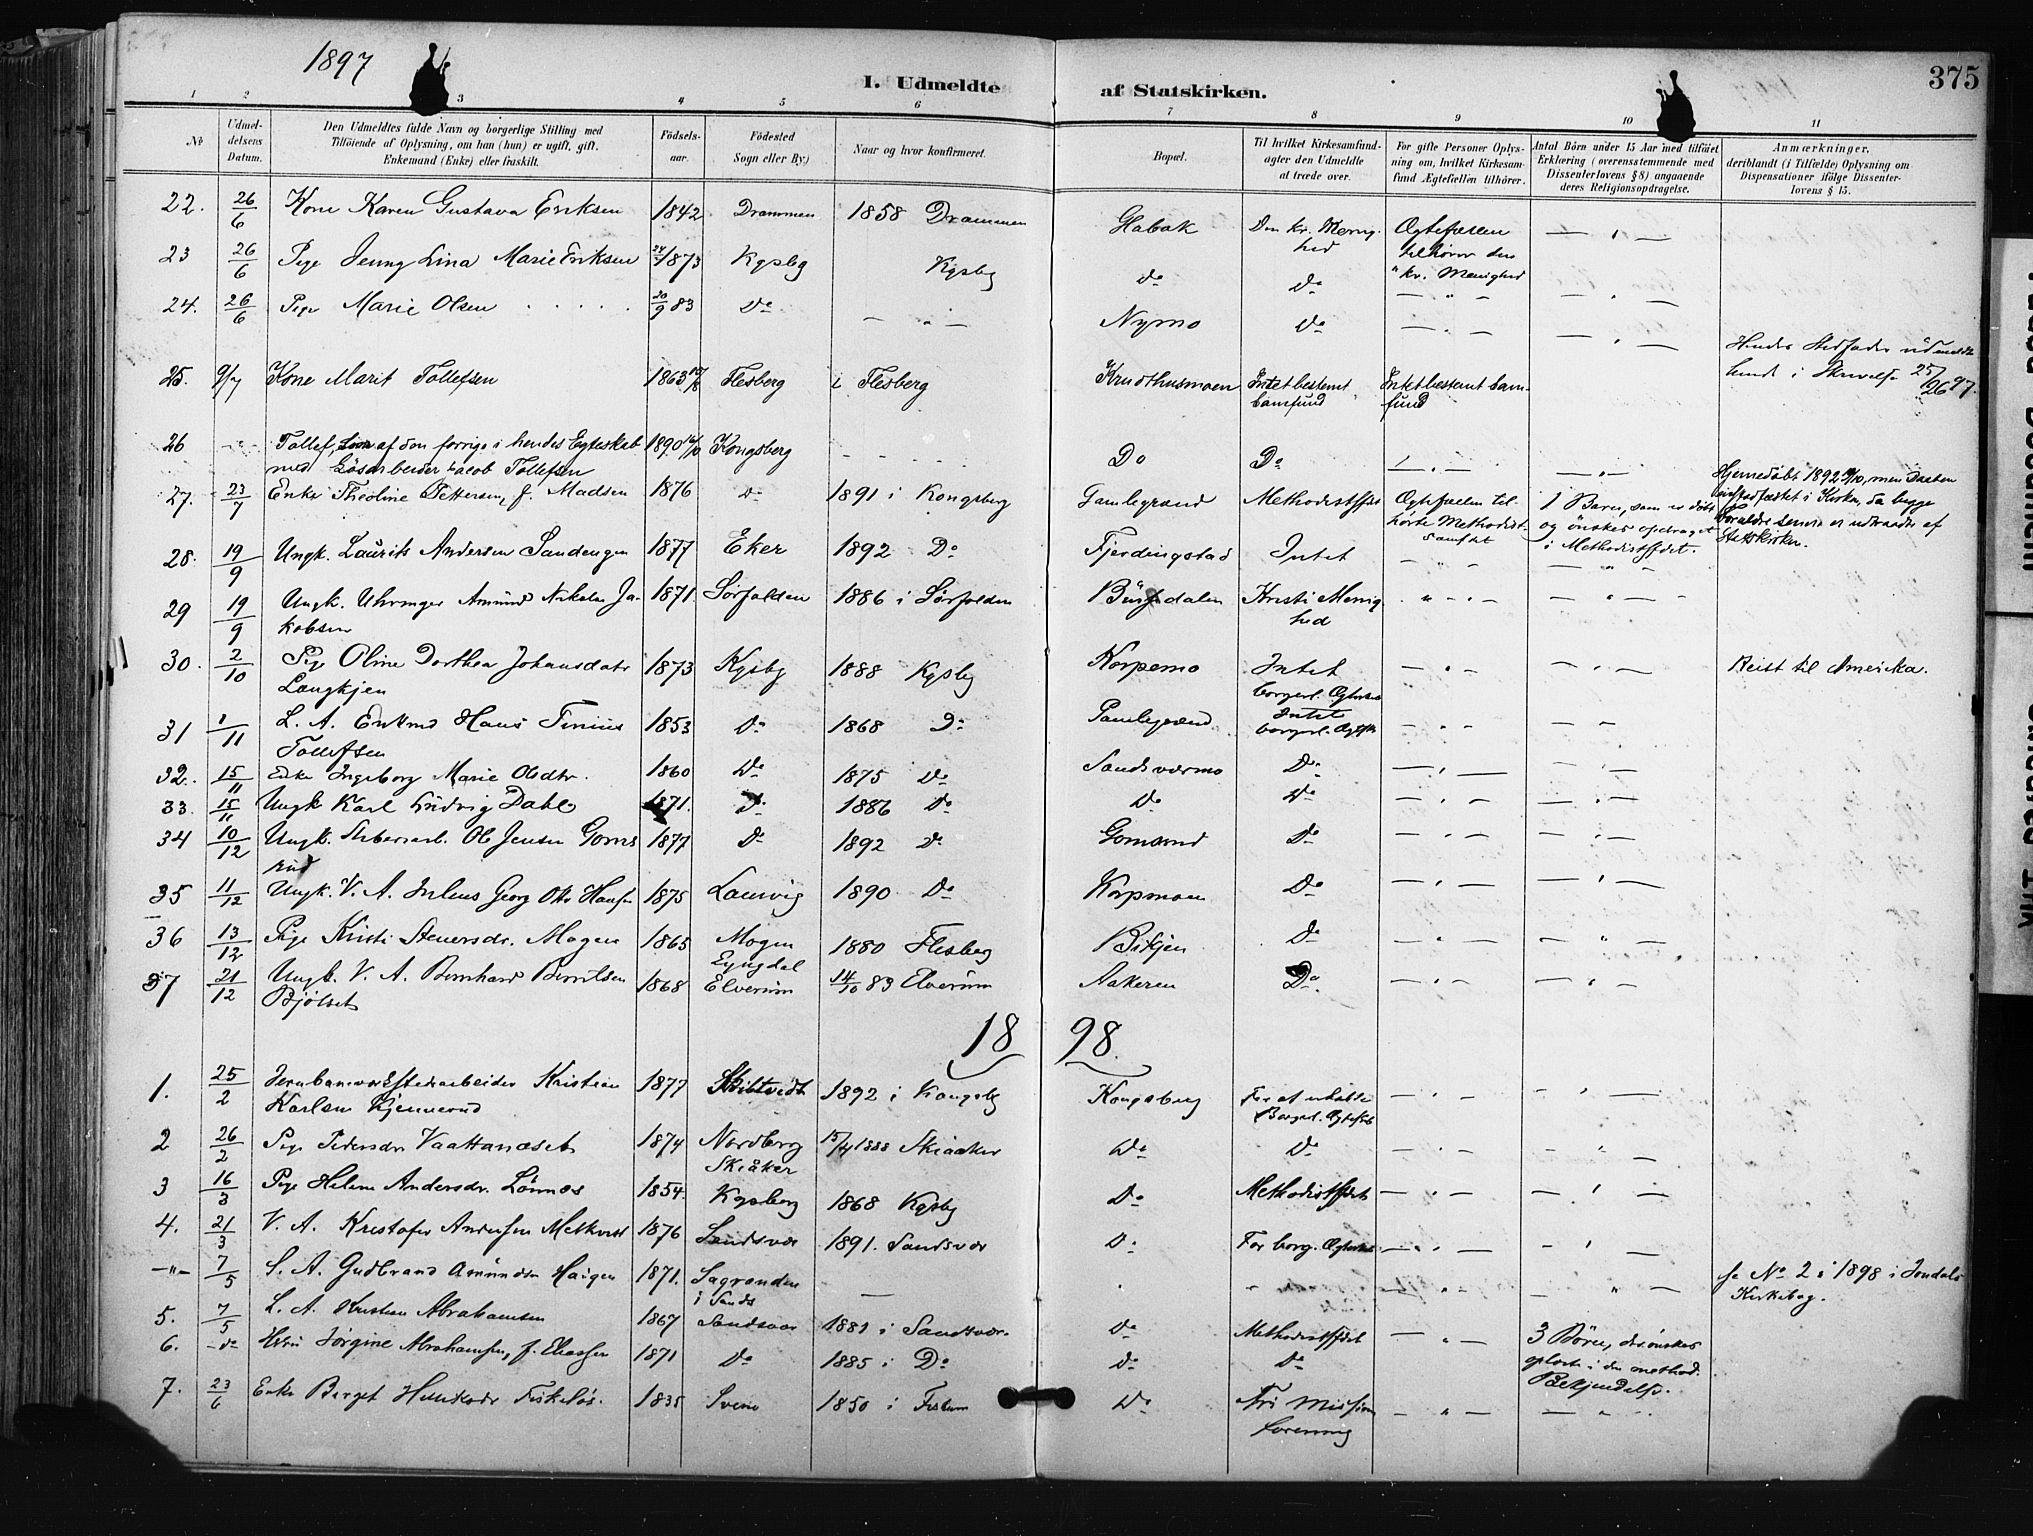 1897
I. Udmeldte af Statskirken.
375
1 2 3 4 5 6 7 8 9 10 11
No
Udmeldelsens Datum.
Den Udmeldtes fulde Navn og borgerlige Stilling med
Tilföiende af Oplysning, om han (hun) er ugift, gift,
Enkemand (Enke) eller fraskilt.
Födselsaar.
Födested
Sogn eller By.)
Naar og hvor konfirmeret.
Bopæl.
Til hvilket Kirkesamfund
agter den Udmeldte
at træde over.
For gifte Personer Oplysning om, hvilket Kirkesamfund Ægtefællen tilhörer.
Antal Börn under 15 Aar med tilföiet
Erklæring (overensstemmende med
Dissenterlovens § 8) angaaende
deres Religionsopdragelse.
Anmærkninger,
deriblandt (i Tilfælde) Oplysning om
Dispensationer ifölge Dissenterlovens § 15.
22. 26/6 Kone Karen Gustava Eriksen 1842 Drammen 1858 Drammen Glabak Den kr. Menighed Ægtefællen tilhører den kr. Menighed — " —
23 26/6 Pige Jenny Lina Marie Eriksen 1873 Kgsbg Kgsbg do do — " — — " —
24. 26/6 Pige Marie Olsen 20/9 83 do — " — Nymo do — " — — " — Hendes Stedfader udmeldte hende i Skrivelse 25/6 97.
25. 9/7 Kone Marit Tollefsen 1863 Flesberg i Flesberg Knudthusmoen Intet bestemt Samfund Intet bestemt Samfund
26 Tollef, Søn af den forrige i hendes Egteskab
med Løsarbeider Jacob Tollefsen 1890 Kongsberg Do Do — " — — " — Hjemmedøbt 1892, men Daaben
stadfæstet i Kirken, da begge
Forældre senere er udtraadte af
Statskirken.
27. 23/7 Enke Theoline Pettersen, f. Madsen 1876 do 1891 i Kongsberg Gamlegrænd Methodistsfdet Ægtefællen tilhørte Methodistsamfdet 1 Barn, som er døbt
og ønskes opdraget
i Methodistsfdet.
28. 19/9 Ungk. Laurits Andersen Sandengen 1877 Eker 1892 Do Fjerdingstad Intet — " — — " —
29 19/9 Ungk. Uhrmager Amund Nikolai Jakobsen 1871. Sørfolden 1886 i Sørfolden Bussedalen Kristi Menighed — " — — " —
30. 2/10 Pige Oline Dorthea Johansdatr
Langkjen 1873 Kgsbg 1888 Kgsbg Korpemo Intet
borgerl. Ægtesk — " — — " — Reist til Amerika.
31 1/11 L. A. Enkmd Hans Tinius
Tollefsen 1853 do 1868 do Gamlegrænd Intet
borgerl. Ægtesk — " — — " —
32. 15/11 Enke Ingeborg Marie Olsdtr. 1860 do 1875 do Sandsværmo Do — " — — " —
33. 15/11 Ungk Karl Ludvig Dahl 1871. do 1886 do do do — " — — " —
34 10/12 Ungk. Ole Jensen Gomsrud 1877 do 1892 do Gomsrud Do — " — — " —
35 11/12 Ungk. V. A. Julius Georg Otto Hansen 1875 Laurvig 1890 Do Korpmoen Do — " — — " —
36 13/12 Pige Kristi Steuersdr. Mogen 1865 Mogen
Lyngdal 1880 Flesberg do — " — — " —
37 21/12 Ungk. V. A. Bernhard Berntsen
Bjølset 1868 Elverum 14/10 83 Elverum Aakeren Do — " — — " —
1898.
1. 25/2 Kristian
Karlsen Kjennerud 1877 Skiltvedt 1892 i Kongsbg Kongsberg For at erholde
Borgerl. Ægtesk — " — — " —
2 26/2 Pige Pedersdr Vaattanæset 1874 Nordberg
Skiåker 15/4 1888 Skiaaker Do Do — " — — " —
3 16/3 Pige Helene Andersdr. Lönnes 1854. Kgsberg 1868 Kgsbg Do Methodistsfdet — " — — " —
4. 21/3 V. A. Kristofer Andersen 1876 Sandsvær 1891. Sandsvær Do For borg. Ægtesk. — " — — " —
— " — 7/5 L. A. Gudbrand Amundsen Haugen 1871.
i Sands — se No 2 i 1898 i Jondals
Kirkebog.
5. 7/5 L. A. Kristen Abrahamsen 1867 Sandsvær 1881 i Sandsvær. do Methodistsfdet — " — 3 Börn, der ønskes
oplært i den method.
Bekjendelse.
6. do Jørgine Abrahamsen, f. Eliassen 1871 do 1885 i Do do Do
7. 23/6 Enke Berget 1835 Svene 1850 i do Fri Missions
forening — " — — " —